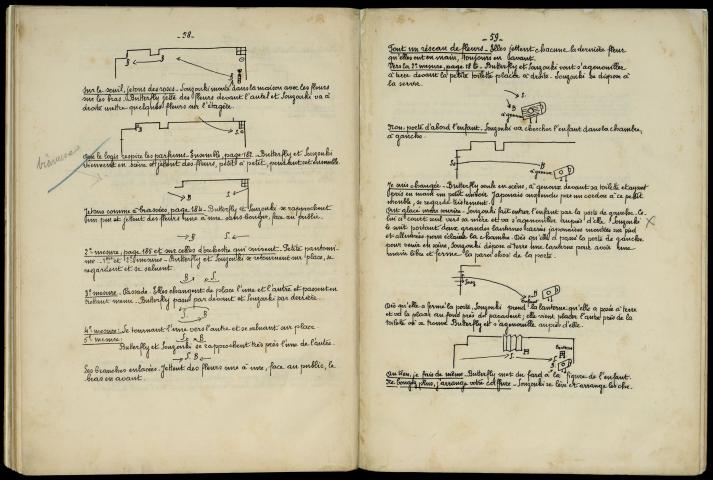 _58_
Sur le seuil, jetons des roses. Souzouki monte dans la maison avec les fleurs
sur les bras. Butterfly jette des fleurs devant l'autel et Souzouki va à
droite mettre quelques fleurs sur l'étagère.
Que le logis respire les parfums. Ensemble, page 182. Butterfly et Souzouki
viennent en scène et jettent des fleurs, petit à petit, pendant cet ensemble.
Jetons comme à brassées, page 184. Butterfly et Souzouki se rapprochent
un peu et jettent des fleurs une à une sans bouger, face au public.
2e mesure, page 185 et sur celles d'orchestre qui suivent. Petite pantomi-
me. 1ère et 2e mesures. Butterfly et Souzouki se retournent sur place, se
regardent et se saluent.
3e mesure. Passade. Elles changent de place l'une et l'autre et passent en
trottant menu. Butterfly passe par devant et Souzouki par derrière.
4e mesure. Se tournant l'une vers l'autre et se saluant sur place
5e mesure.
Butterfly et Souzouki se rapprochent très près l'une de l'autre.
Les branches enlacées. Jettent des fleurs une à une, face au public, le
bras en avant.
_59_
Tout un réseau de fleurs. Elles jettent chacune la dernière fleur
qu'elles ont en main, toujours en avant.
Vers la 3e mesure, page 186. Butterfly et Souzouki vont s'agenouiller
à terre devant la petite toilette placée à droite. Souzouki se dispose à
la servir.
Non, porte d'abord l'enfant. Souzouki va chercher l'enfant dans la chambre,
à gauche.
Je suis changée. Butterfly seule en scène, à genoux devant sa toilette et ayant
pris en main un petit miroir Japonais suspendu par un cordon à ce petit
meuble, se regarde tristement.
Souzouki fait entrer l'enfant par la porte de gauche. Ce-
lui-ci court seul vers sa mère et va s'agenouiller auprès d'elle. Souzouki
le suit portant deux grandes lanternes carrées japonaises montées sur pied
et allumées pour éclairer la chambre. Dès qu'elle a passé la porte de gauche
pour venir en scène, Souzouki dépose à terre une lanterne pour avoir une
main libre et ferme la paroi shosi de la porte.
Dès qu'elle a fermé la porte, Souzouki prend la lanterne qu'elle a posée à terre
et va la placer au fond près du paravent; elle vient placer l'autre près de la
toilette où se trouve Butterfly et s'agenouille auprès d'elle.
Butterfly met du fard à la figure de l'enfant.
Ne bougez plus, j'arrange votre coiffure. Souzouki se lève et arrange les che-